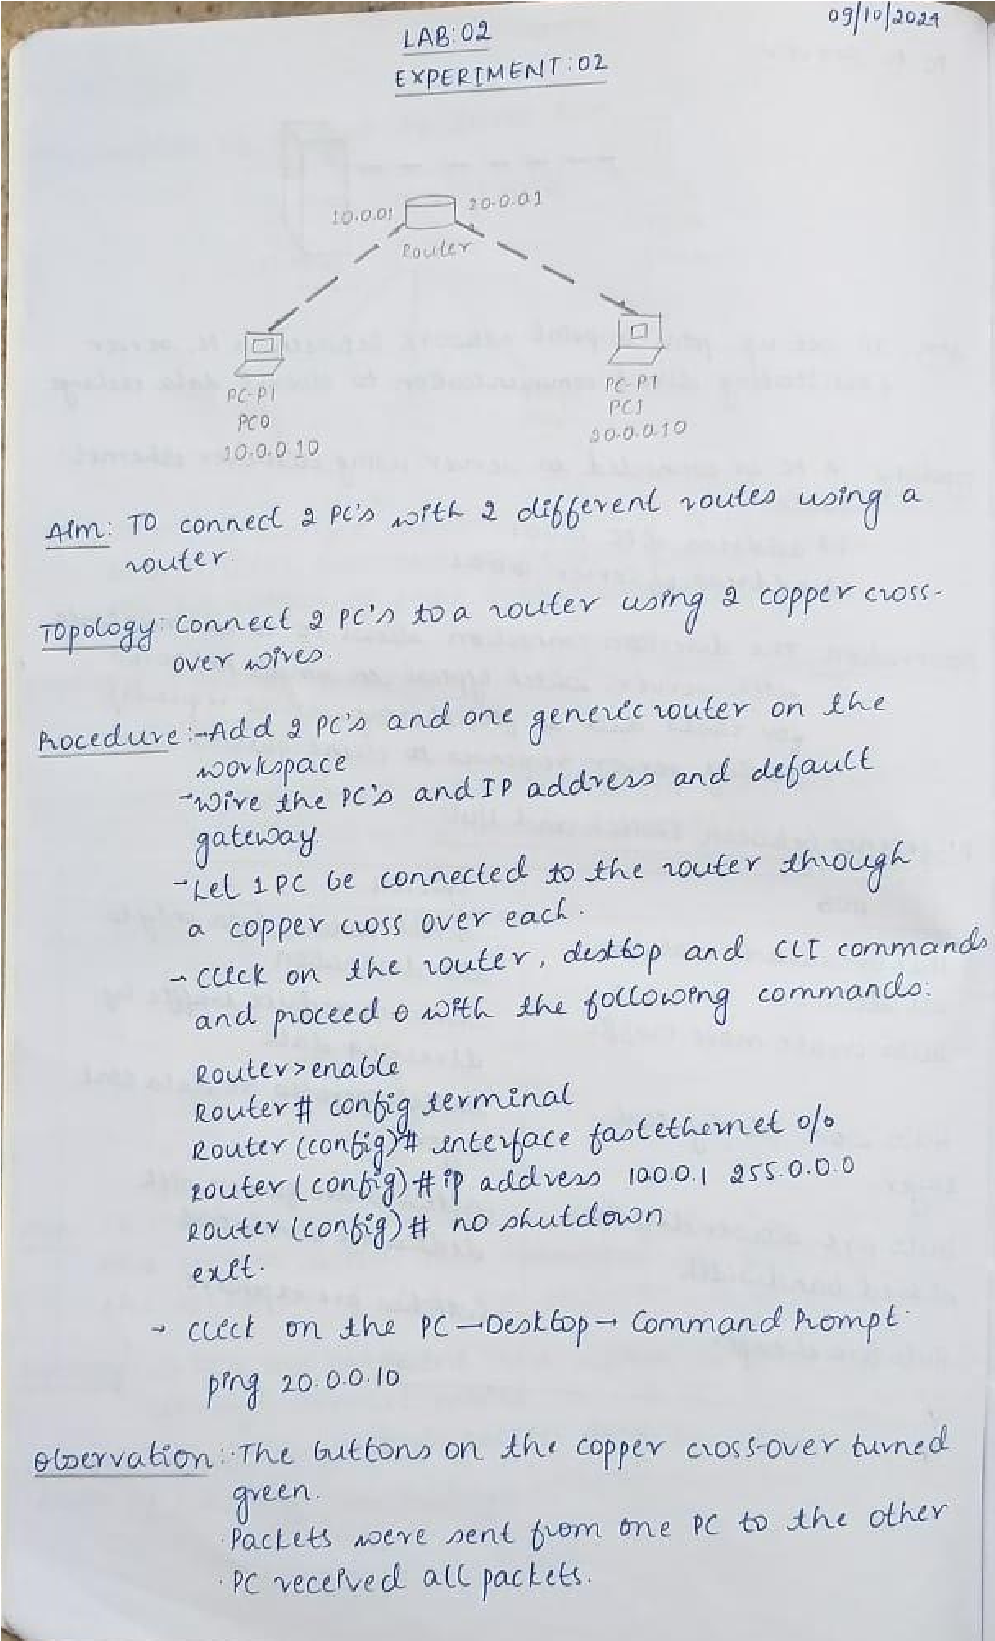 09/10/2024
LAB:02
EXPERIMENT:02
10.0.01
20.0.0.1
Router
PC-PT
PC0
10.0.0.10
PC-PT
PC1
20.0.0.10
Aim: To connect 2 PC's with 2 different routes using a
router.
Topology: Connect 2 PC's to a router using 2 copper cross-
over wires.
Procedure:-Add 2 PC's and one generic router on the
workspace
-Wire the PC's and IP address and default
gateway
-Let 1 PC be connected to the router through
a copper cross over each.
→ Click on the router, desktop and CLI commands
and proceed with the following commands:
Router>enable
Router# config terminal
Router(config)# interface fastethernet 0/0
Router(config)#ip address 10.0.0.1 255.0.0.0
Router(config)# no shutdown
exit.
→ Click on the PC→Desktop→Command Prompt.
ping 20.0.0.10
Observation:·The buttons on the copper cross-over turned
green.
·Packets were sent from one PC to the other
·PC received all packets.